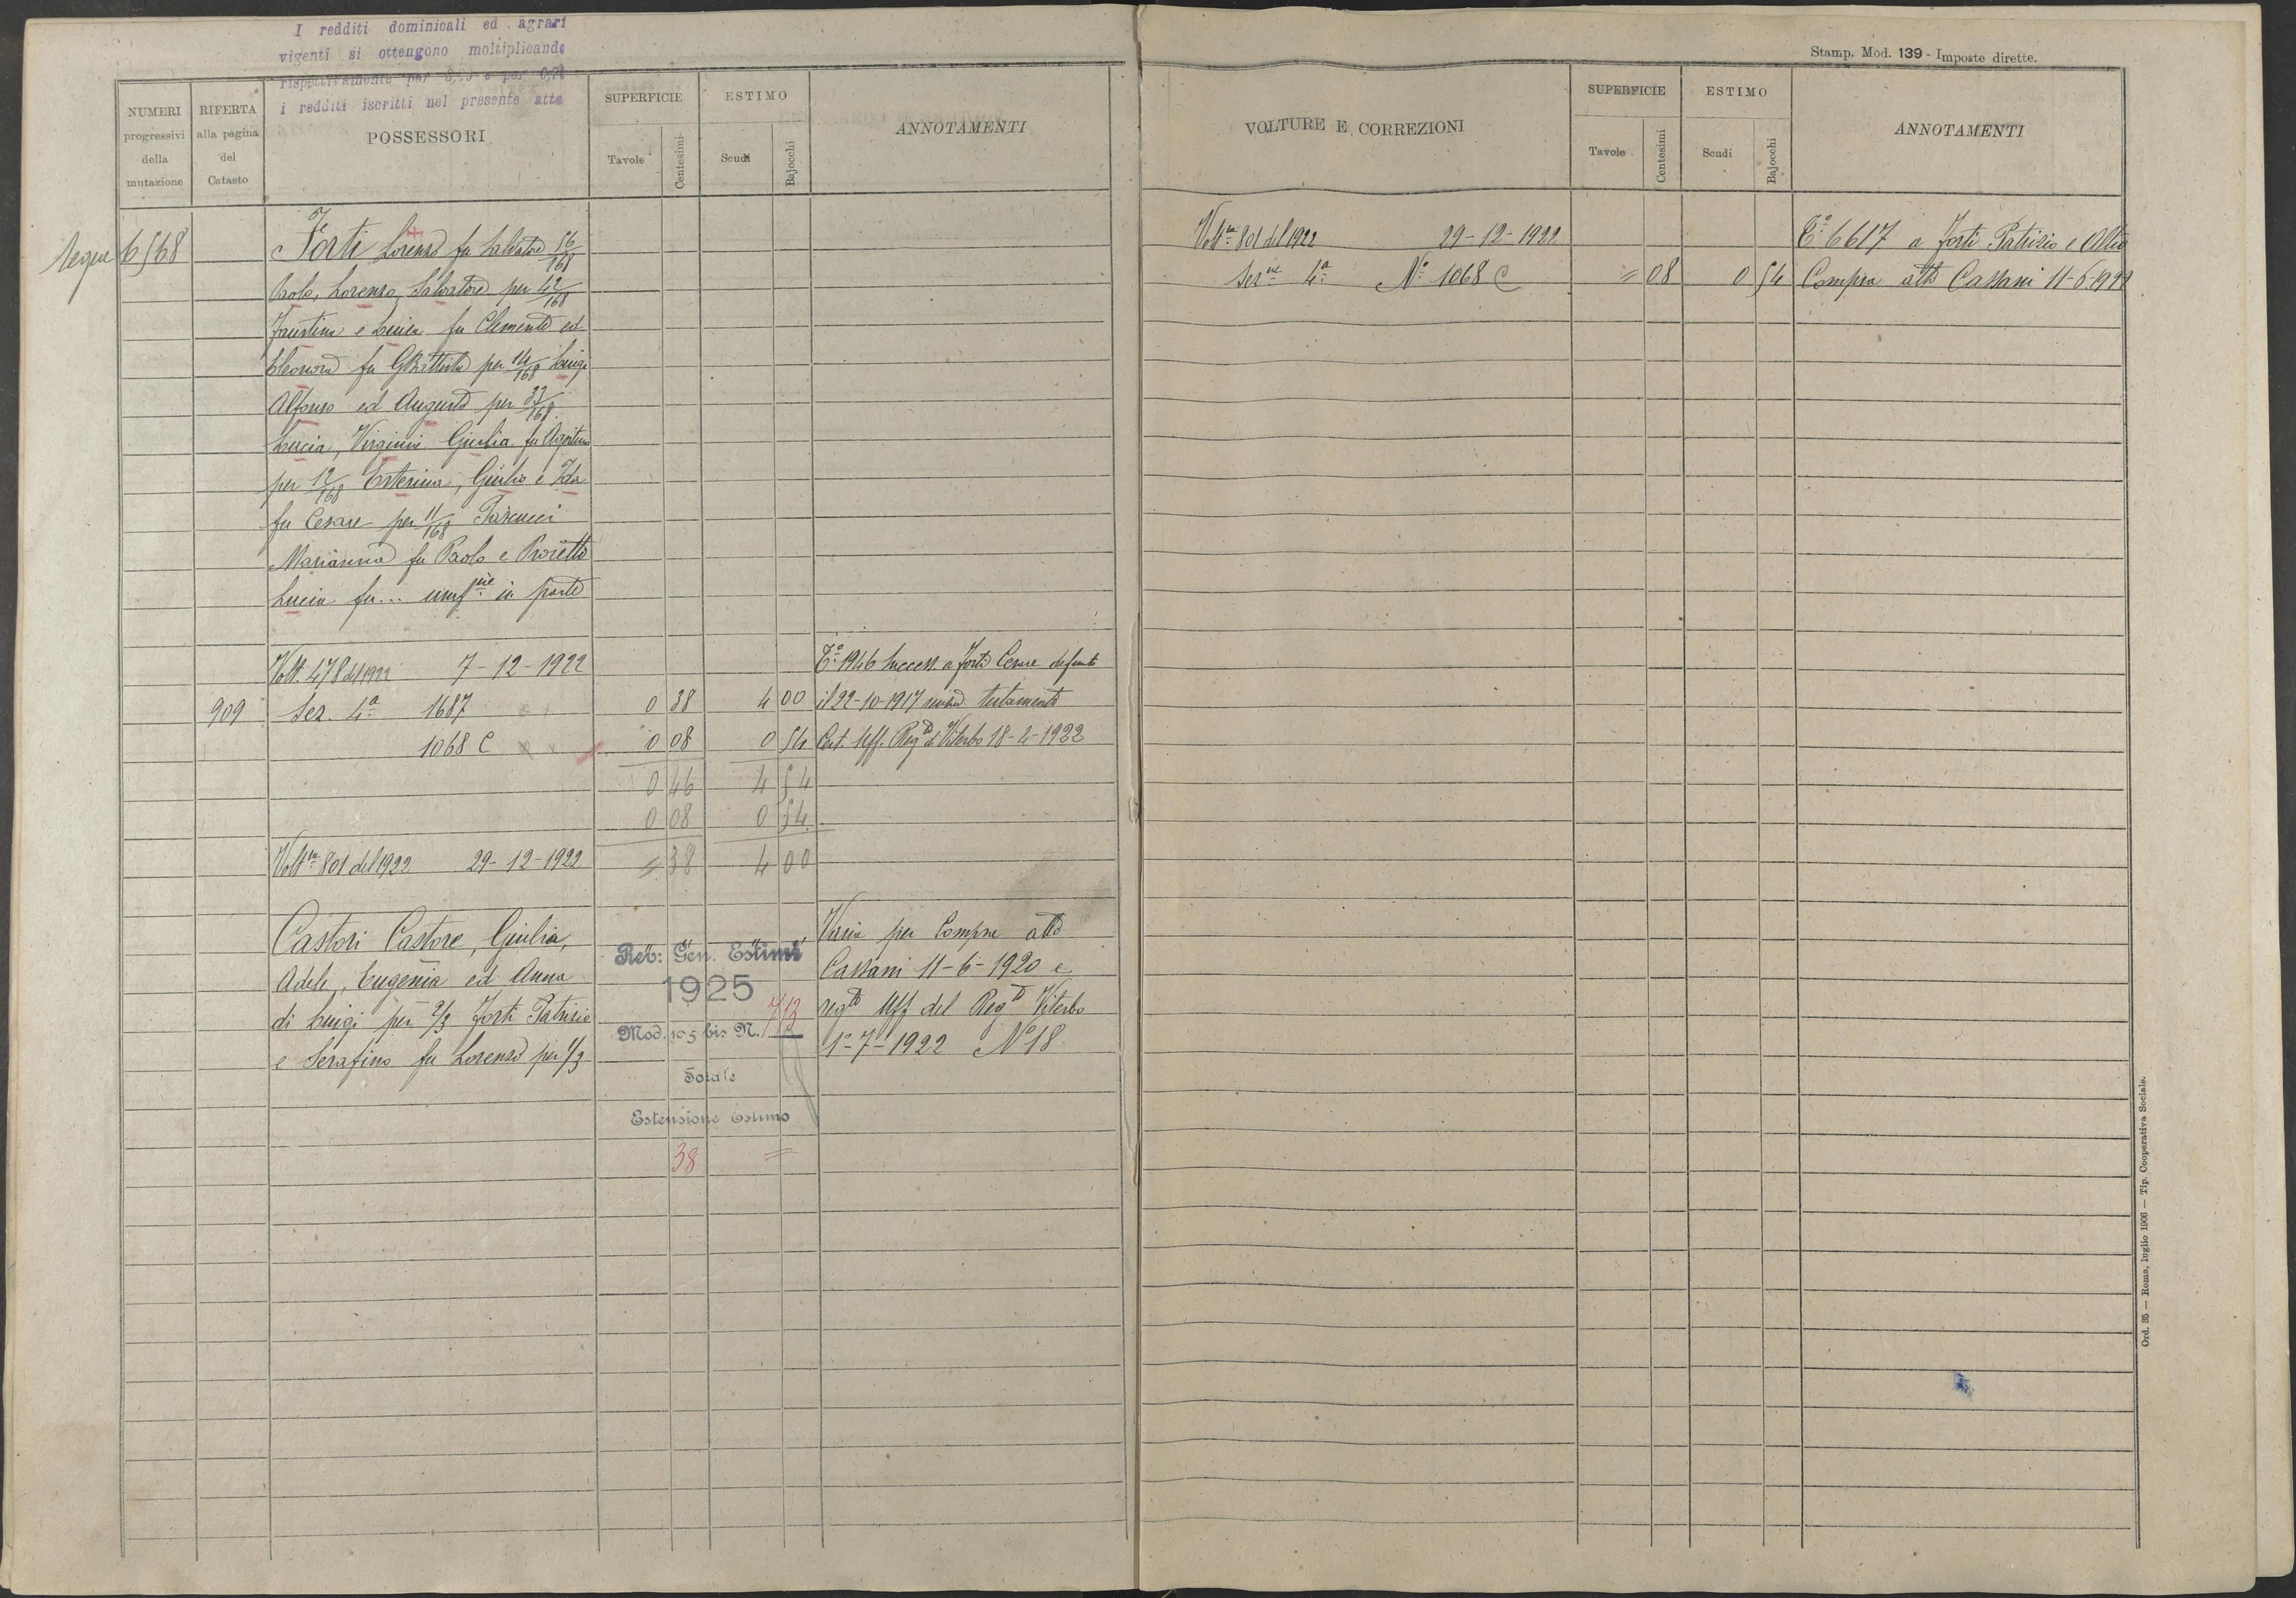 I redditi dominicali ed agrari
vigenti si ottengono moltiplicando
rispettivamente per e per
i redditi iscritti nel presente atto
NUMERI progressivi della mutazione
RIFERTA alla pagina del Catasto
POSSESSORI
SUPERFICIE
Tavole Centesimi
ESTIMO
Scudi Bajocchi
ANNOTAMENTI
segue 6568 Forti Lorenzo fu Salvatore 56/168
Paolo, Lorenzo, Salvatore per 42/168
Faustina e Luisa fu Clemente ed
Eleonora fu GBattista per 14/168 Luigi
Alfonso ed Augusto per 33/168
Lucia, Virginia Giulia fu Agostino
per 12/168 Esterina, Giulio e Ida
fu Cesare per 11/168 Pascucci
Marianna fu Paolo e Proietto
Lucia fu... in parte
Volt. 478 del 1922 7-12-1922 Eo 1946 Success. a Forti Cesare defunto
909 Sez. 4a 1687 0 38 4 00 il 22-10-1917 testamento
1068 C 0 08 0 54 Cert. Uff. Rego di Viterbo 18-4-1922
0 46 4 54
0 08 0 54
Voltra 801 del 1922 29-12-1922 = 38 4 00
Castori Castore, Giulia, Varia per Compra atto
Adele, Eugenia ed Anna Cassani 11-6-1920 e
di Luigi per 2/3 Forti Patrizio regto Uff del Rego Viterbo
e Serafino fu Lorenzo per 1/3 1-7-1922 No 18
Rev: Gen. Estimi
1925
Mod. 105 bis N.
Totale
Estensione Estimo
38 =
Stamp. Mod. 139 - Imposte dirette.
VOLTURE E CORREZIONI
SUPERFICIE
Tavole Centesimi
ESTIMO
Scudi Bajocchi
ANNOTAMENTI
Voltra 801 del 1922 29-12-1922 Eo 6617 a Forti Patrizio e Altri
Sezne 4a No 1068 C = 08 0 54 Compra atto Cassani 11-6-1922
Ord. 35 — Roma, luglio 1906 — Tip. Cooperativa Sociale.